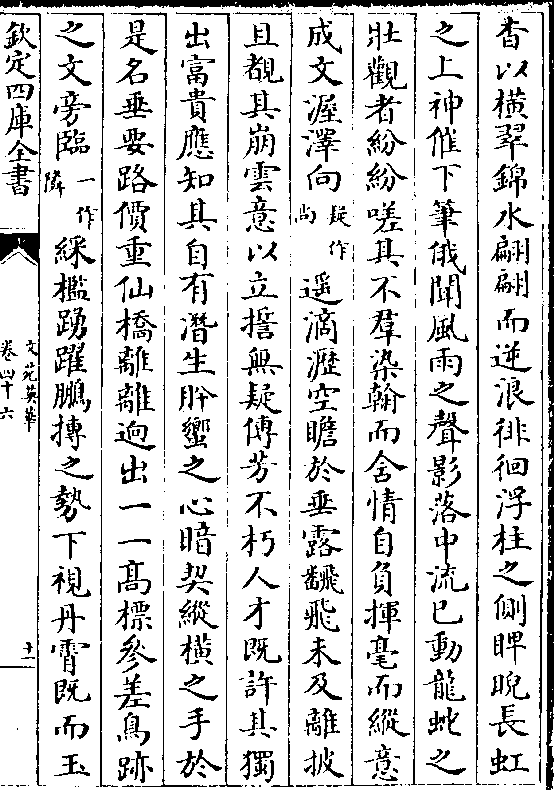 杳以橫翠錦水翩翩而逆浪徘徊浮柱之側睥睨長虹
之上神催下筆俄聞風雨之聲影落中流已動龍蛇之
壯觀者紛紛嗟其不羣染翰而含情自負揮毫而縱意
成文渥澤向疑作尚遥滴瀝空瞻於垂露飜飛未及離披
且覩其崩雲意以立誓無疑傳芳不朽人才既許其獨
出富貴應知其自有潛生肸蠁之心暗契縱橫之手於
是名垂要路價重仙橋離離迥出一一髙標參差鳥跡
之文旁臨一作隣綵檻踴躍鵬摶之勢下視丹霄既而玉
欽定四庫全書
文苑英華
卷四十六
十一